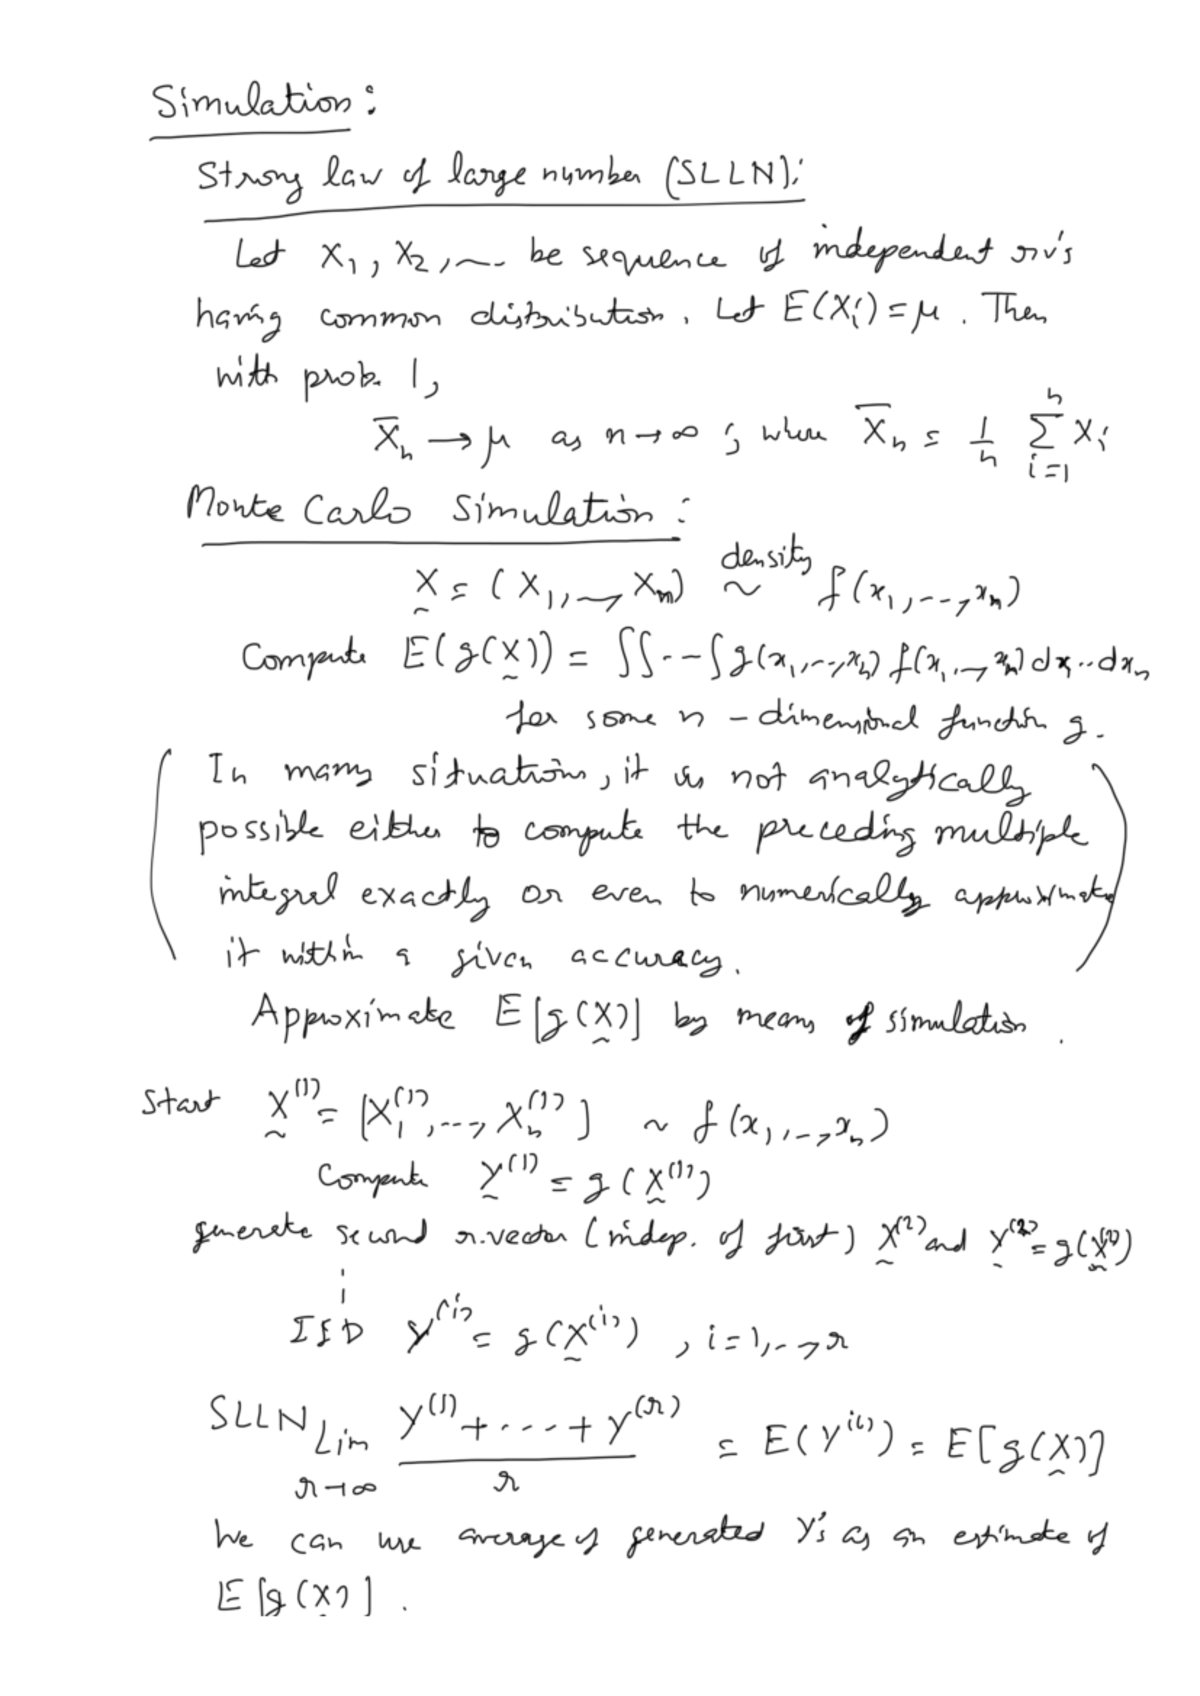 Simulation:
Strong law of large number (SLLN):
Let X₁, X₂, ... be sequence of independent rv's
having common distribution. Let E(Xᵢ) = μ. Then
with prob. 1,
X̅ₙ → μ as n → ∞ ; where X̅ₙ = 1/n ∑ᵢ₌₁ⁿ Xᵢ
Monte Carlo Simulation:
X̰ = (X₁, ..., Xₙ) ~ density f(x₁, ..., xₙ)
Compute E(g(X̰)) = ∫∫...∫ g(x₁, ..., xₙ) f(x₁, ..., xₙ) dx₁..dxₙ
for some n-dimensional function g.
(In many situations, it is not analytically
possible either to compute the preceding multiple
integral exactly or even to numerically approximate
it within a given accuracy.)
Approximate E[g(X̰)] by means of simulation.
Start X̰⁽¹⁾ = [X₁⁽¹⁾, ..., Xₙ⁽¹⁾] ~ f(x₁, ..., xₙ)
Compute Y̰⁽¹⁾ = g(X̰⁽¹⁾)
generate second r.vector (indep. of first) X̰⁽²⁾ and Y̰⁽²⁾ = g(X̰⁽²⁾)
⋮
IID Y⁽ⁱ⁾ = g(X̰⁽ⁱ⁾), i = 1, ..., r
SLLN Lim r→∞ (Y⁽¹⁾ + ... + Y⁽ʳ⁾)/r = E(Y⁽ⁱ⁾) = E[g(X̰)]
We can use average of generated Y's as an estimate of
E[g(X̰)].